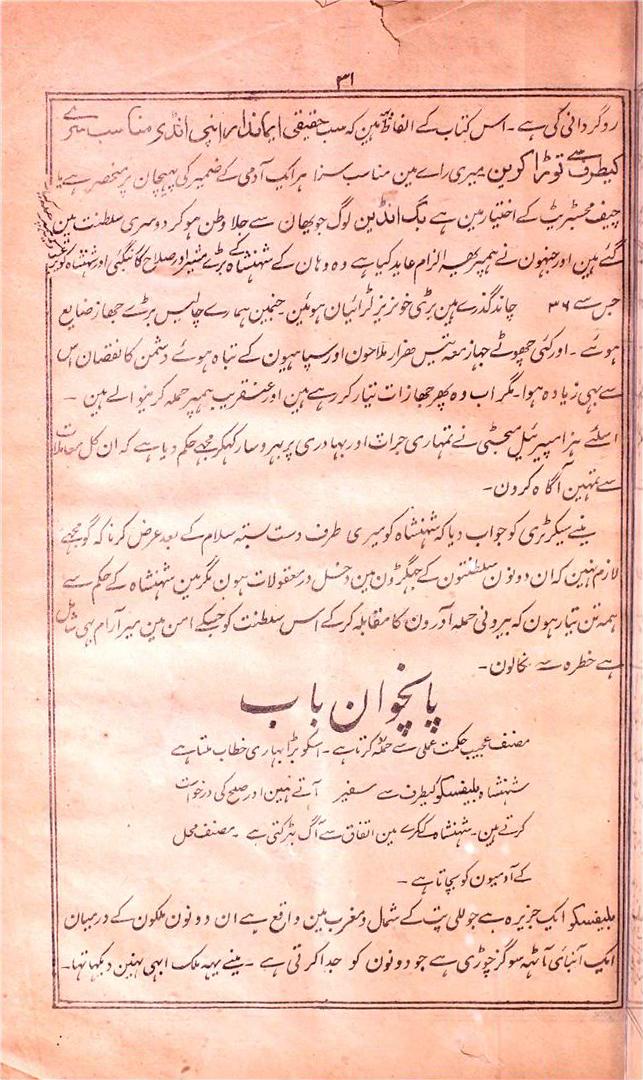 ۳۱
روگردانی کی ہے۔ اس کتاب کے الفاظ یہ ہین کہ سب حقیقی ایماندار اپنی انڈی مناسب سرے
کیطرف سے توڑا کرین میری راے مین مناسب سرا ہر ایک آدمی کے ضمیر کی پہچان پر منحصر ہے یا
چیف مجسٹریٹ کے اختیار مین ہے بگ انڈین لوگ جو یہان سے جلا وطن ہو کر دوسری سلطنت مین
گئے ہین اور جنہون نے ہمپر یہہ الزام عاید کیا ہے وہ وہان کے شہنشاہ کے بڑے مشیر اور صلاح کار بنگئی اور شہنشاہ کو
جس سے ۳۶ چاند گذرے ہین بڑی خونریز لڑائیان ہوئین۔ جنمین ہمارے چالیس بڑے جہاز ضایع
ہوئے۔ اور کئی چھوٹے جہاز معہ تیس ہزار ملاحون اور سپاہیون کے تباہ ہوئے دشمن کا نقصان اس
سے بہی زیادہ ہوا۔ مگر اب وہ پھر جہازات تیار کر رہے ہین اور عنقریب ہمپر حملہ کرنیوالے ہین ۔
اسلئے ہز امپیریل میجسٹی نے تمہاری جرات اور بہادری پر بہروسا رکہکر مجھے حکم دیا ہے کہ ان کل معاملات
سے تمہین آگاہ کردن۔
مینے سیکرٹری کو جواب دیا کہ شہنشاہ کو میری طرف دست بستہ سلام کے بعد عرض کرنا کہ گو مجھے
لازم نہین کہ ان دونون سلطنتون کے جہگڑون مین دخل در معقولات ہون مگر مین شہنشاہ کے حکم سے
ہمہ تن تیار ہون کہ بیرونی حملہ آدرون کا مقابلہ کر کے اس سلطنت کو جسکے امن مین میرا آرام بہی شامل
ہے خطرہ سے نکالون۔
پانچوان باب
مصنف عجیب حکمت عملی سے حملہ کرتا ہے۔ اسکو بڑا بہاری خطاب ملتا ہے
شہنشاہ بلیفسکو کیطرف سے سفیر آتے ہین اور صلح کی درخواست
کرتے ہین۔ شہنشاہ کے کمرے مین اتفاق سے آگ بہڑکتی ہے ۔ مصنف محل
کے آدمیون کو بچاتا ہے ۔
بلیفسکو ایک جزیرہ ہے جو للی پٹ کے شمال و مغرب مین واقع ہے ان دونون ملکون کے درمیان
ایک آبنائی آٹہہ سو گز چوڑی ہے جو دونون کو جدا کرتی ہے ۔ مینے یہہ ملک ابہی نہین دیکہا تہا۔